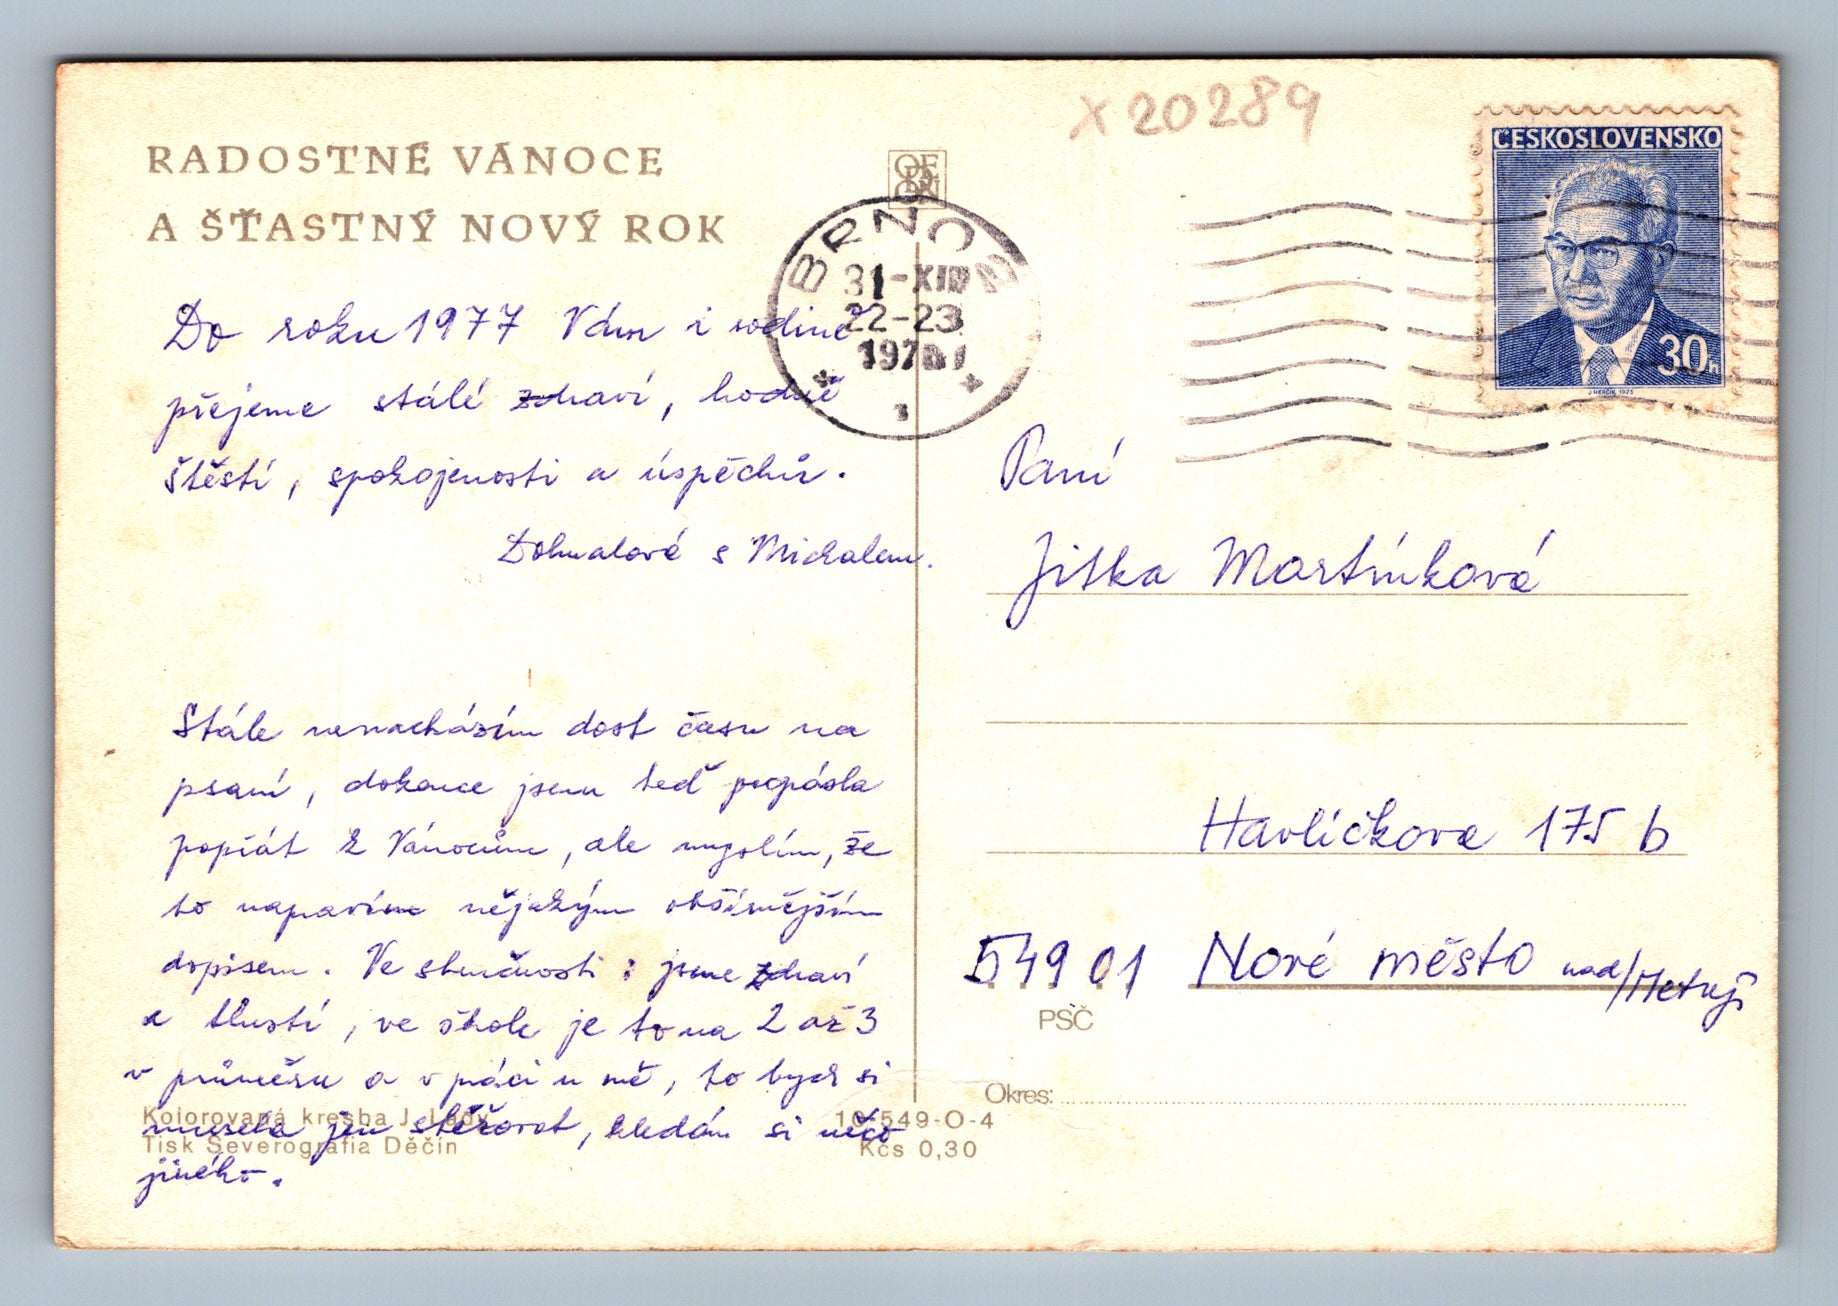 x 20289
RADOSTNÉ VÁNOCE
A ŠŤASTNÝ NOVÝ ROK
BRNO
31-XII
22-23
1976
ČESKOSLOVENSKO
30h
J HERČÍK 1975
Do roku 1977 Vám i rodině
přejeme stálé zdraví, hodně
štěstí, spokojenosti a úspěchů.
Dohnalové s Michalem.
Stále nenacházím dost času na
psaní, dokonce jsem teď propásla
popřát k Vánocům, ale myslím, že
to napravím nějakým obšírnějším
dopisem. Ve stručnosti: jsme zdraví
a tlustí, ve škole je to na 2 až 3
v průměru a v práci u mě, to bych si
musela jen stěžovat, hledám si něco
jiného.
Kolorovaná kresba J. Lady
Tisk Severografia Děčín
10-549-O-4
Kčs 0,30
Paní
Jitka Martínková
Havlíčkova 175 b
549 01 Nové město nad/Metují
PSČ
Okres: